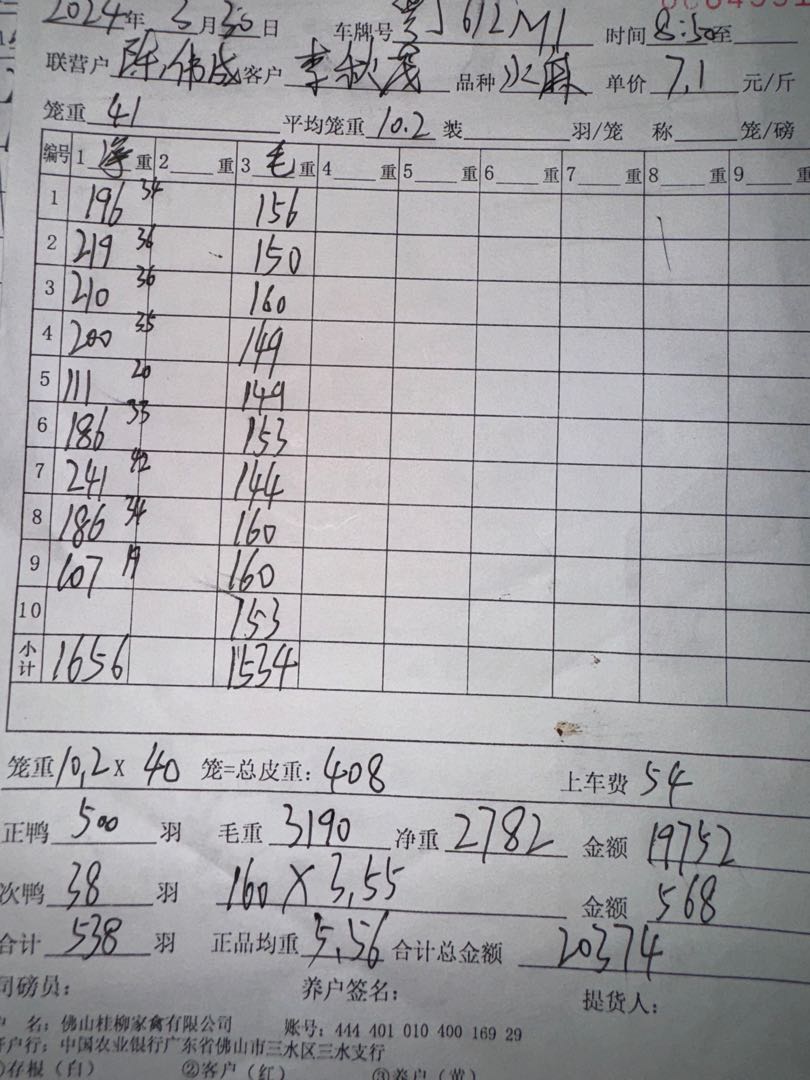 2024年 3月30日 车牌号 612M1 时间 8:50至
联营户 陈伟成 客户 李秋茂 品种 水麻 单价 7.1 元/斤
笼重 41 平均笼重 10.2 装 羽/笼 称 笼/磅
编号 1 重 2 重 3 毛 重 4 重 5 重 6 重 7 重 8 重 9 重
1 196 34 156
2 219 36 150
3 210 36 160
4 200 35 149
5 111 20 149
6 186 33 153
7 241 42 144
8 186 34 160
9 107 19 160
10 153
小计 1656 1534
笼重 10.2 x 40 笼=总皮重: 408 上车费 54
正鸭 500 羽 毛重 3190 净重 2782 金额 19752
次鸭 38 羽 160 X 3.55 金额 568
合计 538 羽 正品均重 5.56 合计总金额 20374
司磅员: 养户签名: 提货人:
户 名: 佛山桂柳家禽有限公司 账号: 444 401 010 400 169 29
开户行: 中国农业银行广东省佛山市三水区三水支行
①存根(白) ②客户(红) ③养户(黄)